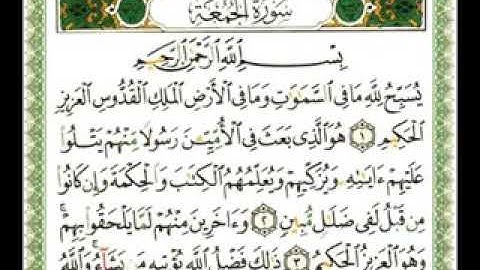 سُورَةُ الْجُمُعَةِ
بِسْمِ اللَّهِ الرَّحْمَٰنِ الرَّحِيمِ
يُسَبِّحُ لِلَّهِ مَا فِي السَّمَٰوَٰتِ وَمَا فِي الْأَرْضِ الْمَلِكِ الْقُدُّوسِ الْعَزِيزِ
الْحَكِيمِ ١ هُوَ الَّذِي بَعَثَ فِي الْأُمِّيِّينَ رَسُولًا مِّنْهُمْ يَتْلُوا
عَلَيْهِمْ ءَايَٰتِهِ وَيُزَكِّيهِمْ وَيُعَلِّمُهُمُ الْكِتَٰبَ وَالْحِكْمَةَ وَإِن كَانُوا
مِن قَبْلُ لَفِي ضَلَٰلٍ مُّبِينٍ ٢ وَءَاخَرِينَ مِنْهُمْ لَمَّا يَلْحَقُوا بِهِمْ
وَهُوَ الْعَزِيزُ الْحَكِيمُ ٣ ذَٰلِكَ فَضْلُ اللَّهِ يُؤْتِيهِ مَن يَشَاءُ وَاللَّهُ